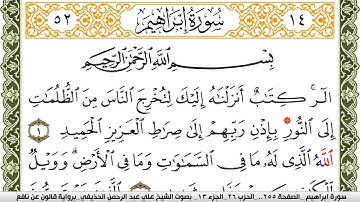 ١٤ سُورَةُ إِبْرَاهِيم ٥٢
بِسْمِ اللَّهِ الرَّحْمَٰنِ الرَّحِيمِ
الٓرۚ كِتَٰبٌ أَنزَلْنَٰهُ إِلَيْكَ لِتُخْرِجَ النَّاسَ مِنَ الظُّلُمَاتِ
إِلَى النُّورِ بِإِذْنِ رَبِّهِمْ إِلَىٰ صِرَاطِ الْعَزِيزِ الْحَمِيدِ ١
اللَّهُ الَّذِي لَهُۥ مَا فِي السَّمَٰوَٰتِ وَمَا فِي الْأَرْضِ وَوَيْلٌ
سورة ابراهيم .. الصفحة ٢٥٥ .. الحزب ٢٦ .. الجزء ١٣ .. بصوت الشيخ علي عبد الرحمن الحذيفي برواية قالون عن نافع